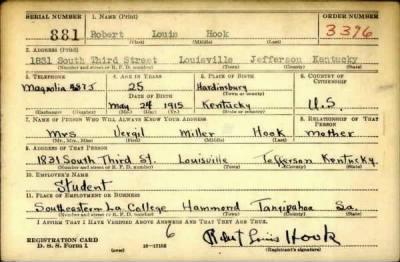 SERIAL NUMBER 1. NAME (Print) ORDER NUMBER
881 Robert Louis Hook 3396
(First) (Middle) (Last)
2. ADDRESS (Print)
1831 South Third Street Louisville Jefferson Kentucky
(Number and street or R. F. D. number) (Town) (County) (State)
3. TELEPHONE 4. AGE IN YEARS 5. PLACE OF BIRTH 6. COUNTRY OF CITIZENSHIP
Magnolia 25 Hardinsburg
DATE OF BIRTH (Town or county)
May 24 1915 Kentucky U.S.
(Exchange) (Number) (Mo.) (Day) (Yr.) (State or country)
7. NAME OF PERSON WHO WILL ALWAYS KNOW YOUR ADDRESS 8. RELATIONSHIP OF THAT PERSON
Mrs Vergil Miller Hook Mother
(Mr., Mrs., Miss) (First) (Middle) (Last)
9. ADDRESS OF THAT PERSON
1831 South Third St. Louisville Jefferson Kentucky
(Number and street or R. F. D. number) (Town) (County) (State)
10. EMPLOYER'S NAME
Student
11. PLACE OF EMPLOYMENT OR BUSINESS
Southeastern La College Hammond Tangipahoa
(Number and street or R. F. D. number) (Town) (County) (State)
I AFFIRM THAT I HAVE VERIFIED ABOVE ANSWERS AND THAT THEY ARE TRUE.
REGISTRATION CARD 6 Robert Louis Hook
D. S. S. Form 1 16-17105 (Registrant's signature)